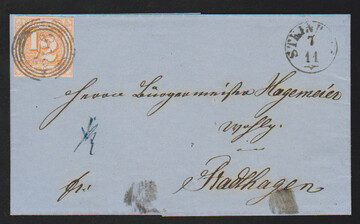 7
11
Herrn Bürgermeister Hagemeier
Wohlg.
fr.
Stadthagen